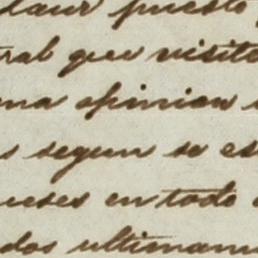 puesto
ral que visito
na opinion
s segun se es
eses en todo
dos ultimam